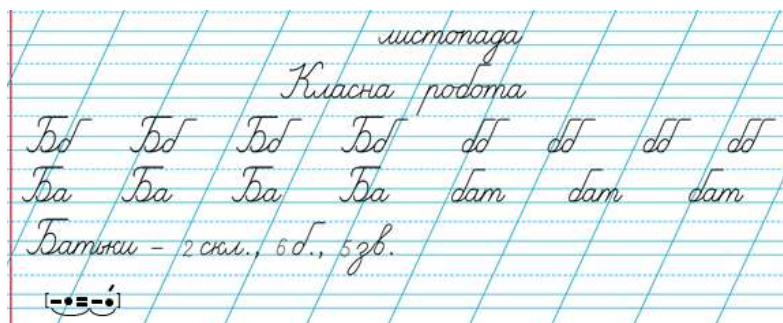 листопада
Класна робота
Бб Бб Бб Бб бб бб бб бб
Ба Ба Ба Ба бат бат бат
Батьки – 2 скл., 6 б., 5 зв.
[–•=–•́]